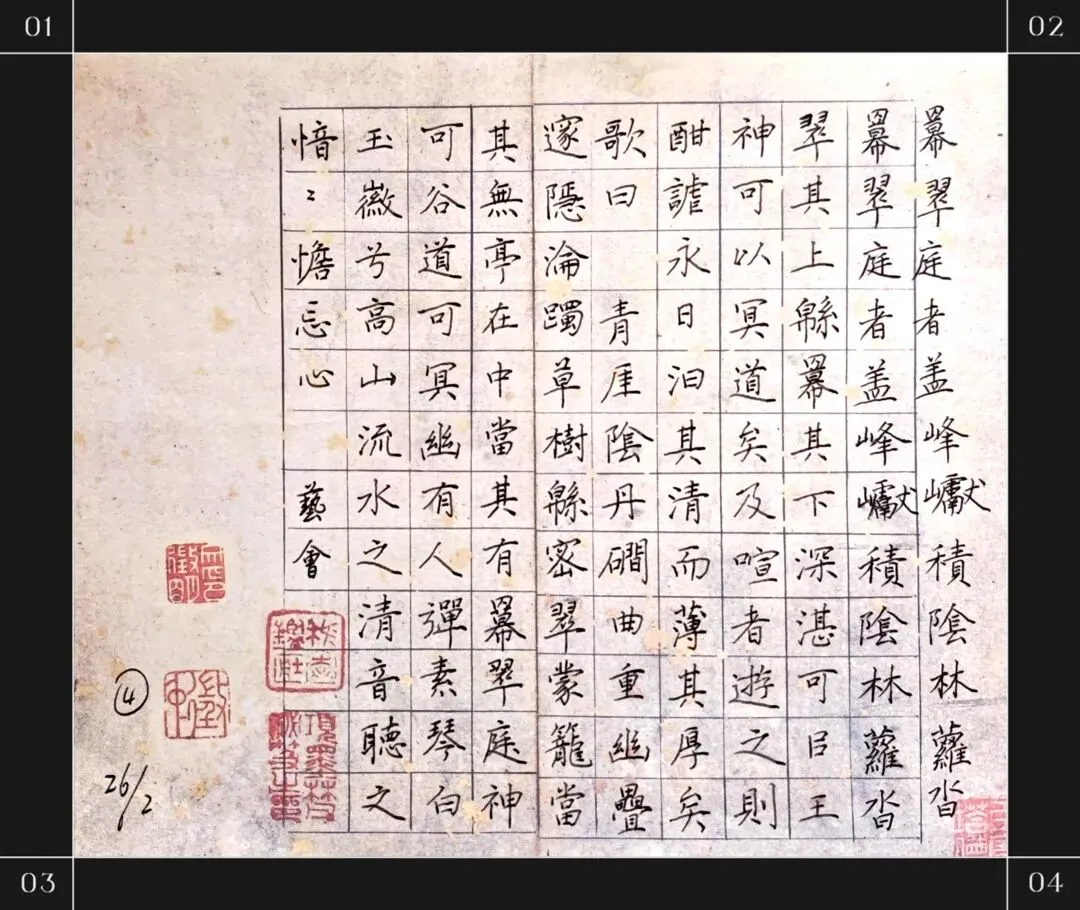 01
02
羃翠庭者盖峰巘積陰林蘿沓
羃翠庭者盖峰巘積陰林蘿沓
翠其上緜羃其下深湛可㠯王
神可以冥道矣及喧者遊之則
酣謔永日汩其清而薄其厚矣
歌曰 青厓陰丹磵曲重幽疊
邃隱淪躅草樹緜密翠蒙籠當
其無亭在中當其有羃翠庭神
可谷道可冥幽有人彈素琴白
玉徽兮高山流水之清音聽之
愔〻憺忘心 藝會
④
26/2
03
04